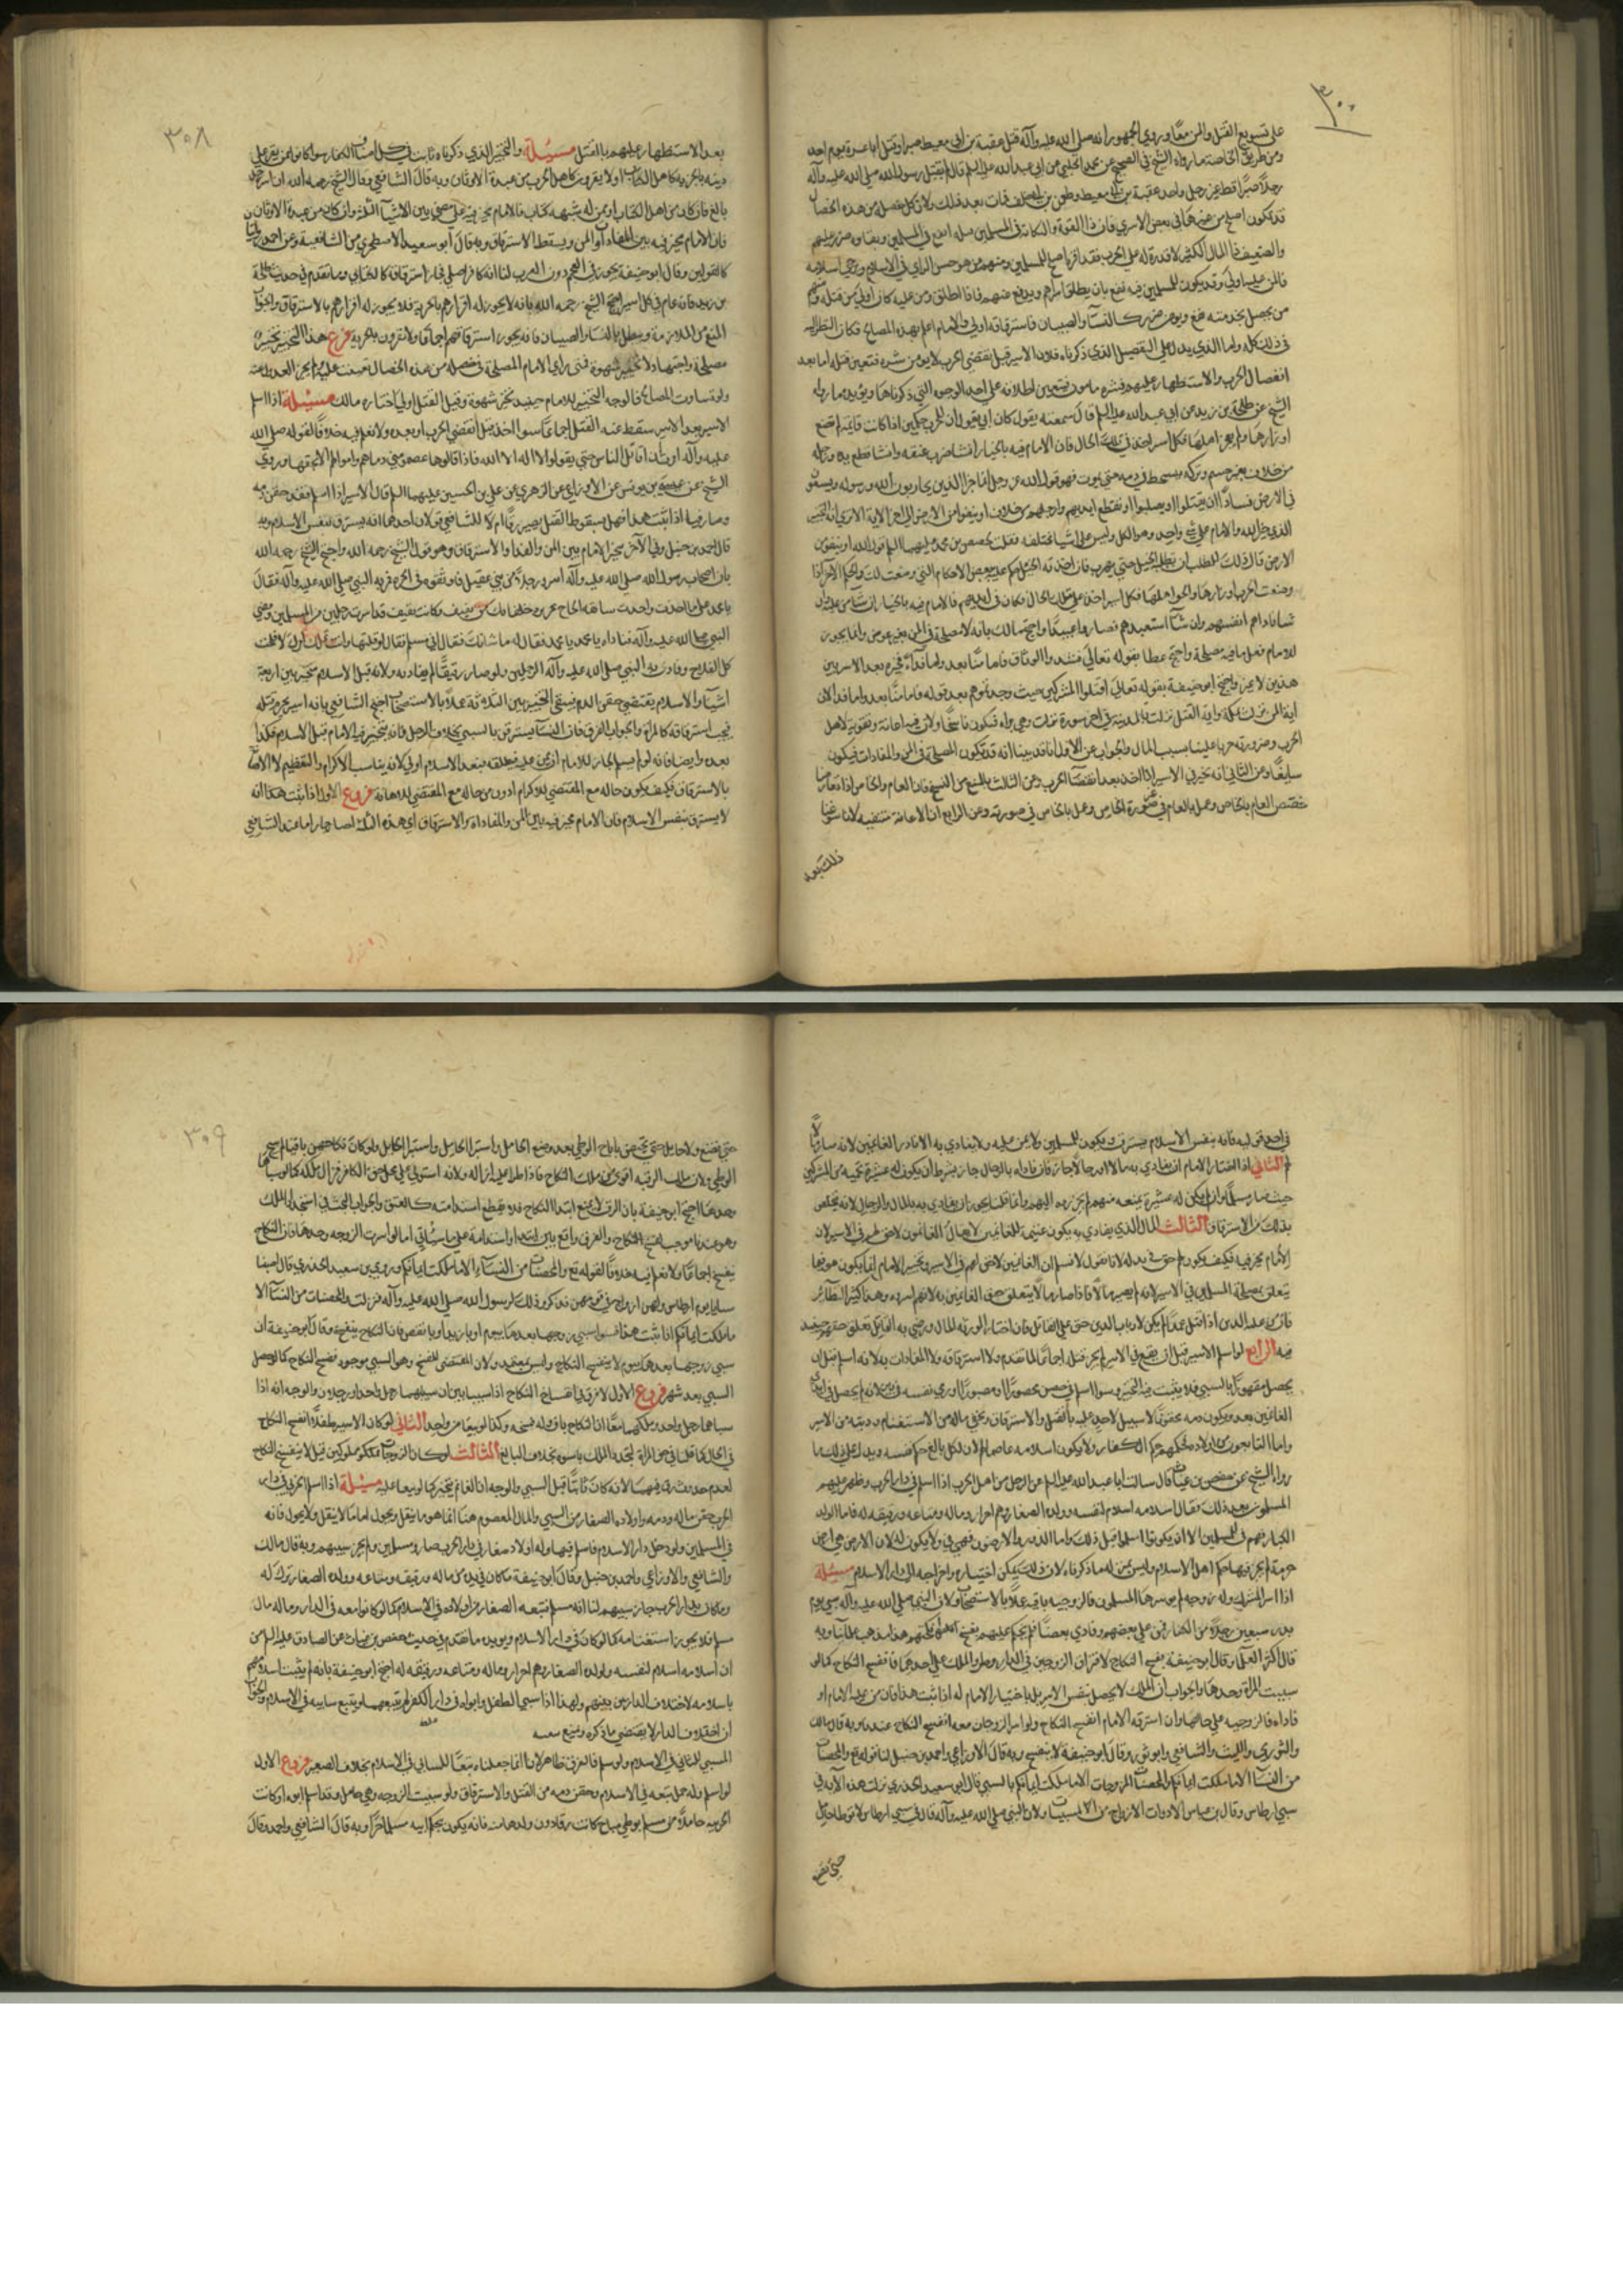 ٣٠٠
على تسويغ القتل والمن معًا وروى الجمهور انه صلى الله عليه وآله قتل عقبة بن ابي معيط صبرا وقتل ابا عزة يوم احد
ومن طريق الخاصة ما رواه الشيخ في الصحيح عن محمد الحلبي عن ابي عبد الله عليه السلم قال لم يقتل رسول الله صلى الله عليه وآله
رجلًا صبرًا قط غير رجل واحد عقبة بن ابي معيط وطعن بن ابي خلف فمات بعد ذلك ولان كل خصلة من هذه الخصال
قد تكون اصلح من غيرها في بعض الاسرى فان ذا القوة والنكاية في المسلمين قتله انفع في المسلمين وبقاؤه ضرر عليهم
والضعيف ذا المال الكثير لا قدرة له على الحرب ففداؤه اصلح للمسلمين ومنهم من هو حسن الراى في الاسلام ويرجى اسلامه
فالمن عليه اولى وقد يكون للمسلمين فيه نفع بان يطلق اسراهم ويدفع عنهم فاذا اطلق ومن عليه كان اولى من قتله ومنهم
من يحصل بخدمته نفع ويؤمن ضرره كالنسآ والصبيان فاسترقاقه اولى والامام اعلم بهذه المصالح فكان النظر اليه
في ذلك كله واما الذي يدل على التفصيل الذي ذكرناه فلان الاسير قبل تقضي الحرب لا يؤمن شره فتعين قتله اما بعد
انفصال الحرب والاستظهار عليهم فشره مامون فتعين اطلاقه على احد الوجوه التي ذكرناها ويؤيده ما رواه
الشيخ عن طلحة بن زيد عن ابي عبد الله عليه السلم قال سمعته يقول كان ابي يقول ان للحرب حكمين اذا كانت قايمة لم تضع
اوزارها ولم يضجر اهلها فكل اسير اخذ في تلك الحال فان الامام فيه بالخيار ان شا ضرب عنقه وان شا قطع يده ورجله
من خلاف بغير حسم وتركه يتشحط في دمه حتى يموت فهو قول الله عز وجل انما جزا الذين يحاربون الله ورسوله ويسعون
في الارض فسادًا ان يقتلوا او يصلبوا او تقطع ايديهم وارجلهم من خلاف او ينفوا من الارض الى اخر الاية الا ترى انه التخيير
الذي خير الله الامام على شي واحد وهو الكل وليس على اشيا مختلفة فقلت لجعفر بن محمد عليهما السلم قول الله او ينفوا من
الارض قال ذلك للطلب ان تطلبه الخيل حتى يهرب فان اخذته الخيل حكم عليه ببعض الاحكام التي وصفت لك والحكم الآخر اذا
وضعت الحرب اوزارها واثخن اهلها فكل اسير اخذ على تلك الحال فكان في ايديهم فالامام فيه بالخيار ان شا من عليه وان
شا فاداهم انفسهم وان شآ استعبدهم فصاروا عبيدًا واحتج مالك بانه لا مصلحة في المن بغير عوض وانما يجوز
للامام فعل ما فيه مصلحة واحتج عطا بقوله تعالى فشدوا الوثاق فاما منًّا بعد واما فداءً فخير بعد الاسر بين
هذين لا غير واحتج ابو حنيفة بقوله تعالى اقتلوا المشركين حيث وجدتموهم بعد قوله فاما منًّا بعد واما فدا لان
اية المن نزلت بمكة واية القتل نزلت بالمدينة في اخر سورة نزلت وهي براة فيكون ناسخًا ولان فيه اعانة وتقوية لاهل
الحرب وضرورته حربا علينا بسبب المال والجواب عن الاول انا قد بينا انه قد تكون المصلحة في المن والمفادات فيكون
سايغًا وعن الثاني انه تخير في الاسير اذا اخذ بعد انقضآ الحرب وعن الثالث بالمنع من النسخ فان العام والخاص اذا تعارضا
خصص العام بالخاص وعمل بالعام في غير صورة الخاص وعمل بالخاص في صورته وعن الرابع ان الاعانة منتفية لانا سوغنا
ذلك بعد
٣٠٨
بعد الاستظهار عليهم بالقتل مسئلة والتخيير الذي ذكرناه ثابت في كل اصناف الكفار سوا كانوا ممن يقر على
دينه بالجزية كاهل الكتاب او لا يقرون كاهل الحرب من عبدة الاوثان وبه قال الشافعي وقال الشيخ رحمه الله ان اسر رجل
بالغ فان كان من اهل الكتاب او ممن له شبهة كتاب فالامام مخير فيه على ما مضى بين الاشيآ الثلثة وان كان من عبدة الاوثان
فان الامام مخير فيه بين المفاداة والمن ويسقط الاسترقاق وبه قال ابو سعيد الاصطخري من الشافعية وعن احمد روايتان
كالقولين وقال ابو حنيفة يجوز في العجم دون العرب لنا انه كافر اصلي فجاز استرقاقه كالكتابي وما تقدم في حديث طلحة
بن زيد فانه عام في كل اسير احتج الشيخ رحمه الله بانه لا يجوز له اقرارهم بالجزية فلا يجوز له اقرارهم بالاسترقاق والجواب
المنع من الملازمة ويبطل بالنسآ والصبيان فانه يجوز استرقاقهم اجماعًا ولا يقرون بالجزية فرع هذا التخيير تخيير
مصلحة واجتهاد لا تخيير شهوة فمتى راى الامام المصلحة في خصلة من هذه الخصال تعينت عليه ولم يجز العدول عنه
ولو تساوت المصالح فالوجه التخيير للامام حينئذ تخير شهوة وقيل القتل اولى اختاره مالك مسئلة اذا اسلم
الاسير بعد الاسر سقط عنه القتل اجماعًا سوا اخذ قبل تقضي الحرب او بعده ولا نعلم فيه خلافًا لقوله صلى الله
عليه وآله امرت ان اقاتل الناس حتى يقولوا لا اله الا الله فاذا قالوها عصموا مني دماءهم واموالهم الا بحقها وروى
الشيخ عن عيسى بن يونس عن الاوزاعي عن الزهري عن علي بن الحسين عليهما السلم قال الاسير اذا اسلم فقد حقن دمه
وصار فيئا اذا ثبت هذا فهل بسقوط القتل يصير رقًّا ام لا للشافعي قولان احدهما انه يسترق بنفس الاسلام وبه
قال احمد بن حنبل وفي الآخر مخير الامام بين المن والفدا والاسترقاق وهو قول الشيخ رحمه الله واحتج الشيخ رحمه الله
بان اصحاب رسول الله صلى الله عليه وآله اسروا رجلًا من بني عقيل فاوثقوه في الحرة فمر به النبي صلى الله عليه وآله فقال
يا محمد على ما اخذت واخذت سابقة الحاج بجريرة حلفائك من ثقيف وكانت ثقيف قد اسرت رجلين من المسلمين ومضى
النبي صلى الله عليه وآله فناداه يا محمد يا محمد فقال له ما شانك فقال اني مسلم فقال لو قلتها وانت تملك امرك لافلحت
كل الفلاح وفادى به النبي صلى الله عليه وآله الرجلين ولو صار رقيقًا لم يفاد به ولانه قبل الاسلام مخير بين اربعة
اشيآ والاسلام يقتضي حقن الدم فيبقى التخيير بين الثلاثة عملًا بالاستصحاب احتج الشافعي بانه اسير يحرم قتله
فيجب استرقاقه كالمراة والجواب الفرق فان النسآ يسترقن بالسبي بخلاف الرجل فانه يتخير فيه الامام قبل الاسلام فكذا
بعده وايضا فانه لو لم يسلم لجاز للامام ان يمن عليه فبعد الاسلام اولى لانه يناسب الاكرام والتعظيم لا الاهانة
بالاسترقاق فكيف يكون حاله مع المقتضي للاكرام ادون من حاله مع المقتضي للاهانة فروع الاول اذا ثبت هذا انه
لا يسترق بنفس الاسلام فان الامام مخير فيه بين المن والمفاداة والاسترقاق اي هذه الثلثة اختار اما عند الشافعي
في احد قوليه فانه بنفس الاسلام يسترق ويكون للمسلمين ولا يمن عليه ولا يفادي به الا باذن الغانمين لانه صار مالًا
لهم الثاني اذا اختار الامام ان يفادي به مالا او رجالًا جاز فان فاداه بالرجال جاز بشرط ان يكون له عشيرة تحميه من المشركين
حيث صار مسلمًا وان لم يكن له عشيرة تمنعه منهم لم يجز رده اليهم وانما قلنا يجوز ان يفادي به بالمال والرجال لانه يتخلص
بذلك من الاسترقاق الثالث المال الذي يفادي به يكون غنيمة للغانمين لا يقال الغانمون لا حق لهم في الاسير لان
الامام مخير فيه فكيف يكون لهم حق في بدله لانا نقول لا نسلم ان الغانمين لا حق لهم في الاسير وتخير الامام انما يكون فيما
يتعلق بمصلحة المسلمين في الاسر لانه لم يصر مالًا فاذا صار مالًا تعلق حق الغانمين به لانهم اسروه وهذا كثير النظائر
فان من عليه الدين اذا قتل عمدًا لم يكن لارباب الدين حق على القاتل فان اختار الورثة المال ورضي به القاتل تعلق حقهم حينئذ
فيه الرابع لو اسلم الاسير قبل ان يقع في الاسر لم يجز قتله اجماعًا لما تقدم ولا استرقاقه ولا المفادات به لانه اسلم قبل ان
يحصل مقهورًا بالسبي فلا يثبت فيه التخيير وسوا اسلم في حصن محصورًا او مصبورًا او رمى نفسه في بئر لانه لم يحصل في ايدي
الغانمين بعد ويكون دمه محقونًا لا سبيل لاحد عليه بالقتل والاسترقاق ويحقن ماله من الاستغنام وذريته من الاسر
واما البالغون من اولاده فحكمهم حكم الكفار ولا يكون اسلامه عاصما لهم لان لكل بالغ حكم نفسه ويدل على ذلك ما
رواه الشيخ عن حفص بن غياث قال سالت ابا عبد الله عليه السلم عن الرجل من اهل الحرب اذا اسلم في دار الحرب وظهر عليهم
المسلمون بعد ذلك فقال اسلامه اسلام لنفسه وولده الصغار وهم احرار وماله ومتاعه ورقيقه له فاما الولد
الكبار فهم فيء للمسلمين الا ان يكونوا اسلموا قبل ذلك واما الدور والارضون فهي فيء ولا يكون له لان الارض هي ارض
جزية لم يجر فيها حكم اهل الاسلام وليس بمنزلة ما ذكرناه لان ذلك يمكن اختياره واخراجه الى دار الاسلام مسئلة
اذا اسر المشرك وله زوجة لم يوسرها المسلمون فالزوجية باقية عملًا بالاستصحاب ولان النبي صلى الله عليه وآله سبى يوم
بدر سبعين رجلًا من الكفار فمن على بعضهم وفادى بعضًا فلم يحكم عليهم بفسخ انكحتهم هذا مذهب علمائنا وبه
قال اكثر العلمآ وقال ابو حنيفة يفسخ النكاح لافتراق الزوجين في الدار وطرو الملك على احدهما فانفسخ النكاح كما لو
سبيت المراة وحدها والجواب ان الملك لا يحصل بنفس الاسر بل باختيار الامام له اذا ثبت هذا فان من عليه الامام او
فاداه فالزوجية على حالها وان استرقه الامام انفسخ النكاح ولو اسر الزوجان معه انفسخ النكاح عندنا وبه قال مالك
والثوري والليث والشافعي وابو ثور وقال ابو حنيفة لا ينفسخ وبه قال الاوزاعي واحمد بن حنبل لنا قوله تع والمحصنات
من النسآ الا ما ملكت ايمانكم والمحصنات المزوجات الا ما ملكت ايمانكم بالسبي قال ابو سعيد الخدري نزلت هذه الآية في
سبي اوطاس وقال بن عباس الا ذوات الازواج من المسبيات ولان النبي صلى الله عليه وآله قال في سبي اوطاس لا توطا حامل
حتى تضع
٣٠٩
حتى تضع ولا حايل حتى تحيض فاباح الوطي بعد وضع الحامل واستبرا الحايل ولو كان نكاحهن باقيا لم يبح
الوطي ولان ملك الرقبة اقوى من ملك النكاح فاذا طرا عليه ازاله ولانه استولى على محل حق الكافر فزال ملكه كما لو سباها
وحدها احتج ابو حنيفة بان الرق لا يمنع ابتدا النكاح فلا يقطع استدامته كالعتق والجواب البحث في استحداث الملك
وهو عندنا موجب لفسخ النكاح والفرق واقع بين ابتدا واستدامة على ما سياتي اما لو اسرت الزوجة وحدها فان النكاح
ينفسخ اجماعًا ولا نعلم فيه خلافًا لقوله تع والمحصنات من النسآء الا ما ملكت ايمانكم وروى بن سعيد الخدري قال اصبنا
سبايا يوم اوطاس ولهن ازواج في قومهن فذكروا ذلك لرسول الله صلى الله عليه وآله فنزلت والمحصنات من النسآ الا
ما ملكت ايمانكم اذا ثبت هذا فسوا سبي زوجها بعدها بيوم او بازيد او بانقص فان النكاح ينفسخ وقال ابو حنيفة ان
سبي زوجها بعدها بيوم لا ينفسخ النكاح وليس بمعتمد ولان المقتضي للفسخ وهو السبي موجود فيفسخ النكاح كما لو حصل
السبي بعد شهر فروع الاول لا فرق في انفساخ النكاح اذا سبيا بين ان يسبيهما رجل واحد او رجلان والوجه انه اذا
سباهما رجل واحد وملكهما معًا ان النكاح باق وله فسخه وكذا لو بيعا من واحد الثاني لو كان الاسير طفلًا انفسخ النكاح
في الحال كما قلنا في حق المراة لتجدد الملك باسره بخلاف البالغ الثالث لو كان الزوجان مملوكين قيل لا ينفسخ النكاح
لعدم حدوث رق فيهما لانه كان ثابتًا قبل السبي والوجه ان الغانم يتخير كما لو بيعا عليه مسئلة اذا اسلم الحربي في دار
الحرب حقن ماله ودمه واولاده الصغار من السبي والمال المعصوم هنا انما هو ما ينقل ويحول اما ما لا ينقل ولا يحول فانه
فيء للمسلمين ولو دخل دار الاسلام فاسلم فيها وله اولاد صغار في دار الحرب صاروا مسلمين ولم يجز سبيهم وبه قال مالك
والشافعي والاوزاعي واحمد بن حنبل وقال ابو حنيفة ما كان في يديه من ماله ورقيقه ومتاعه وولده الصغار ترك له
وما كان بدار الحرب جاز سبيهم لنا انه مسلم فتبعه الصغار من اولاده في الاسلام كما لو كانوا معه في الدار وماله مال
مسلم فلا يجوز استغنامه كما لو كان في دار الاسلام ويؤيده ما تقدم في حديث حفص بن غياث عن الصادق عليه السلم من
ان اسلامه اسلام لنفسه ولولده الصغار وهم احرار وماله ومتاعه ورقيقه له احتج ابو حنيفة بانه لم يثبت اسلامهم
باسلامه لاختلاف الدارين بينهم ولهذا اذا سبي الطفل وابواه في دار الكفر لم يتبعهما ويتبع سابيه في الاسلام والجواب
ان اختلاف الدار لا يقتضي ما ذكره ويمنع تبعية
المسبي للسابي في الاسلام ولو سلم فالفرق ظاهر لانا انما جعلناه تبعًا للسابي في الاسلام بخلاف الصغير فروع الاول
لو اسلم وله حمل تبعه في الاسلام وحقن دمه من القتل والاسترقاق ولو سبيت الزوجة وهي حامل وقد اسلم ابوه او كانت
الحربية حاملًا من مسلم بوطي مباح كانت رقا دون ولدها منه فانه يكون بحكم ابيه مسلمًا حرًا وبه قال الشافعي واحمد وقال